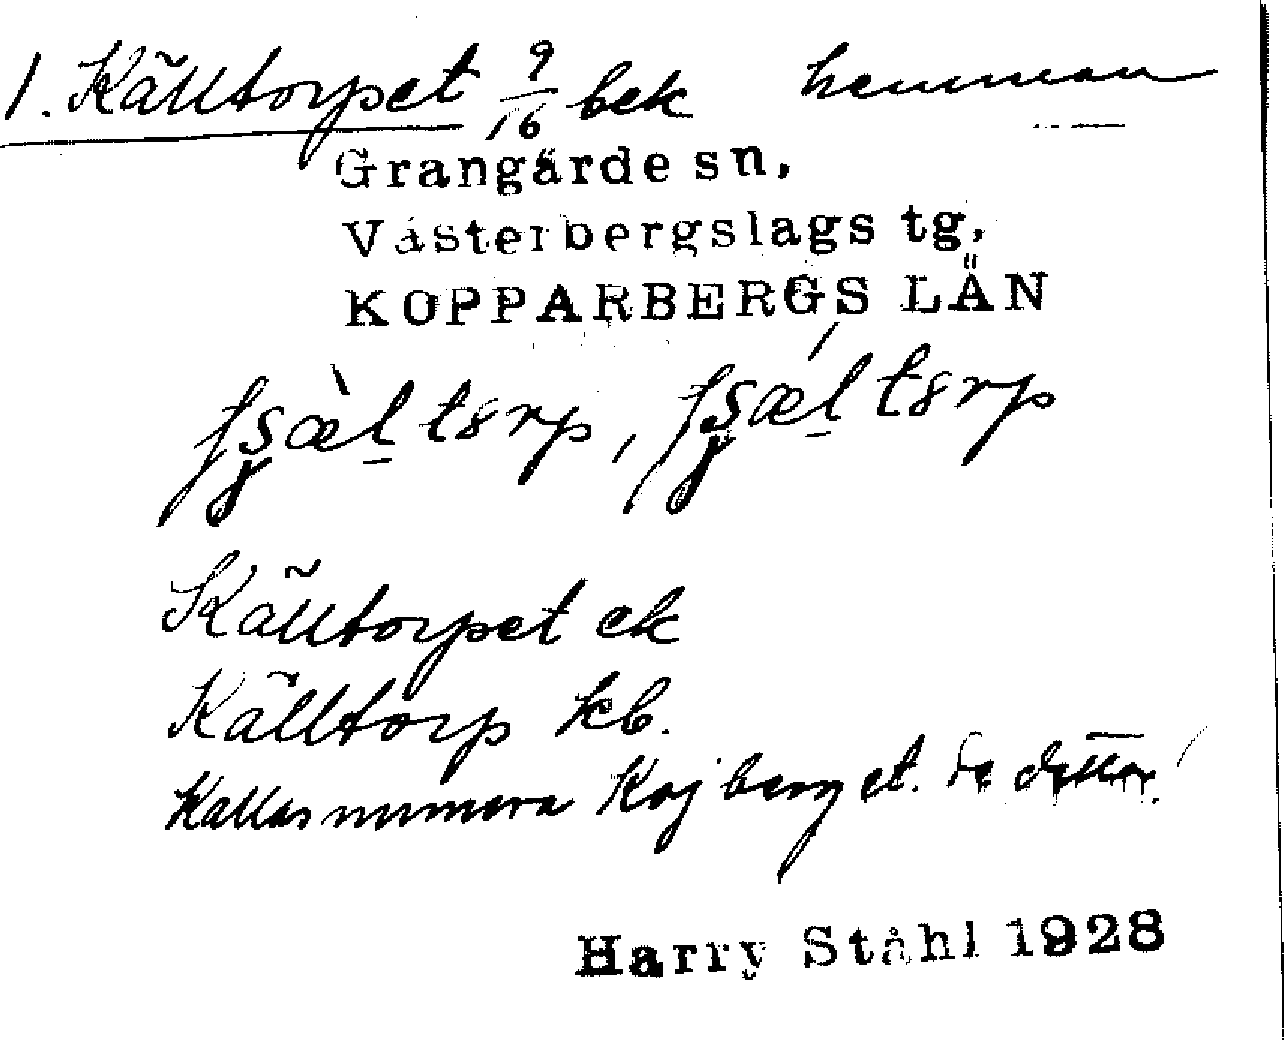 1. Källtorpet 9/16 bek hemman
Grangärde sn,
Västerbergslags tg,
KOPPARBERGS LÄN
Källtorpet ek
Källtorp kb.
Kallas numera Kajberget. Se detta!
Harry Ståhl 1928